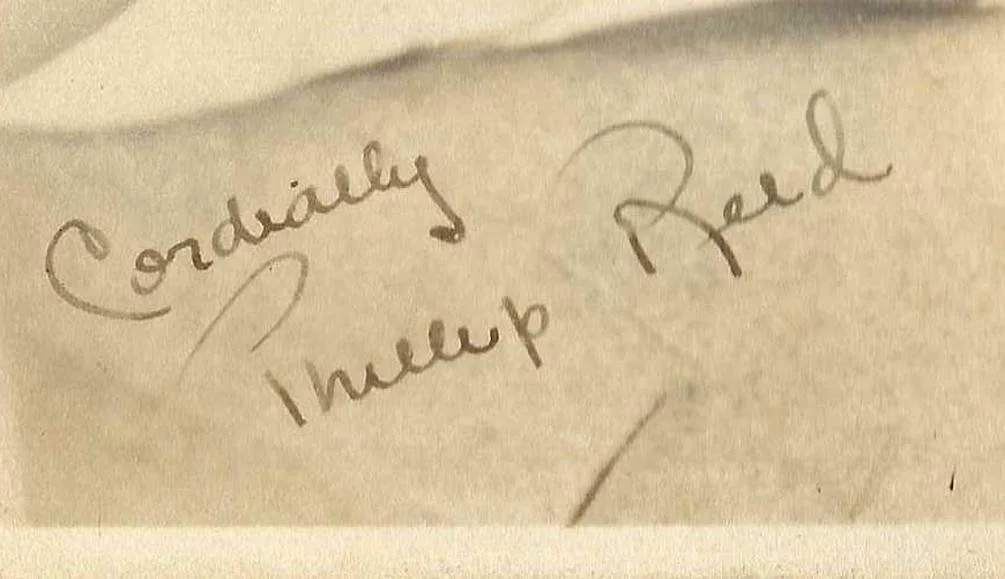 Cordially
Phillip Reed